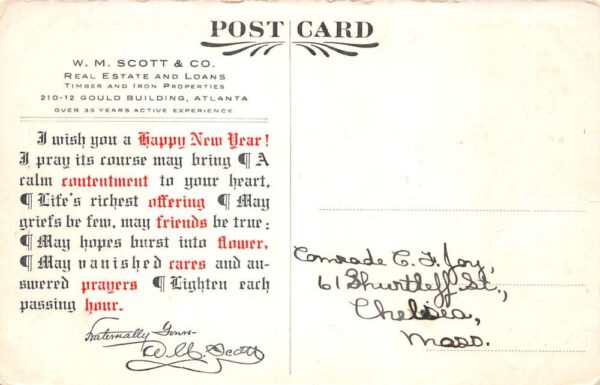 POST CARD
W. M. SCOTT & CO.
REAL ESTATE AND LOANS
TIMBER AND IRON PROPERTIES
210-12 GOULD BUILDING, ATLANTA
OVER 35 YEARS ACTIVE EXPERIENCE
I wish you a Happy New Year!
I pray its course may bring ¶ A
calm contentment to your heart,
¶ Life's richest offering ¶ May
griefs be few, may friends be true:
¶ May hopes burst into flower,
¶ May vanished cares and an-
swered prayers ¶ Lighten each
passing hour.
Fraternally Yours
W. M. Scott
Comrade C. F. Joy,
61 Shurtleff St.,
Chelsea,
Mass.